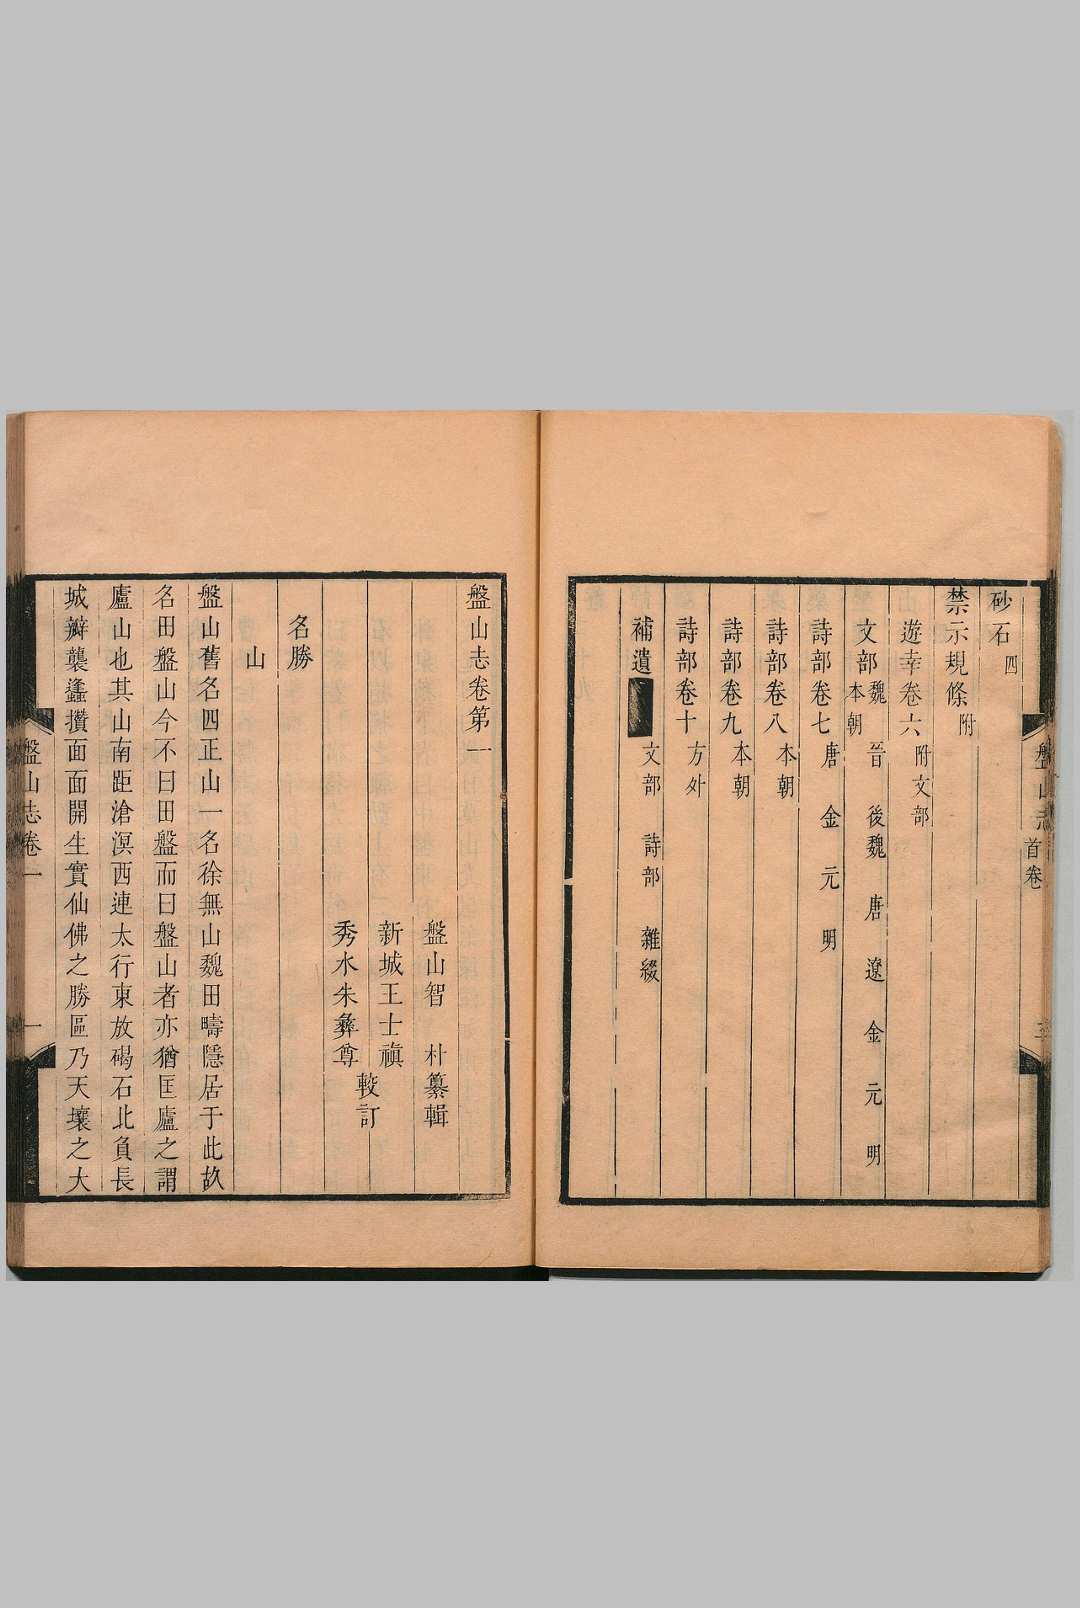 砂石 四
禁示規條 附
遊幸卷六 附文部
文部 魏 晉 後魏 唐 遼 金 元 明 本朝
詩部卷七 唐 金 元 明
詩部卷八 本朝
詩部卷九 本朝
詩部卷十 方外
補遺 文部 詩部 雜綴
盤山志 首卷
盤山志卷第一
盤山智 朴纂輯
新城王士禛
秀水朱彝尊
較訂
名勝
山
盤山舊名四正山一名徐無山魏田疇隱居于此故
名田盤山今不曰田盤而曰盤山者亦猶匡廬之謂
廬山也其山南距滄溟西連太行東放碣石北負長
城瓣襲蠭攢面面開生實仙佛之勝區乃天壤之大
盤山志卷一 一